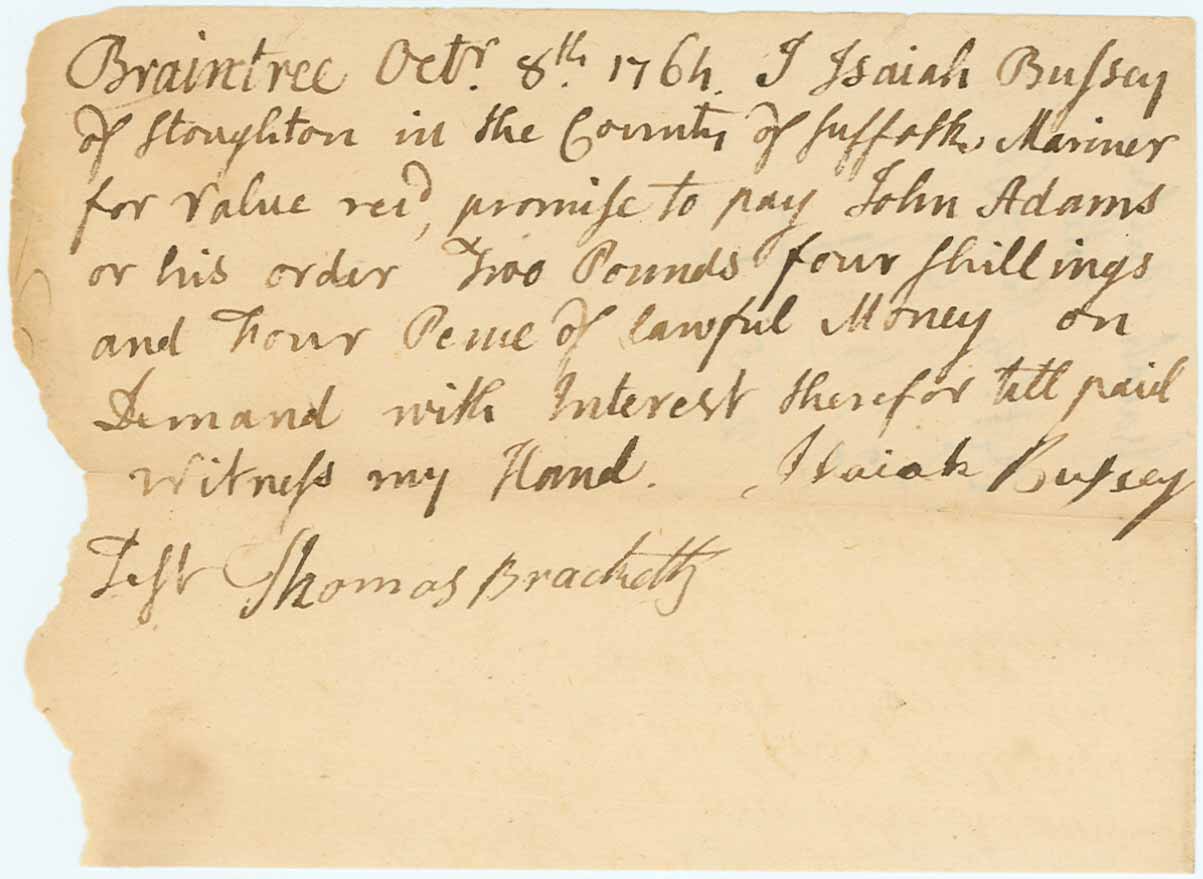 Braintree Octr. 8th. 1764. I Isaiah Bussey
of Stoughton in the County of Suffolk, Mariner
for Value recd, promise to pay John Adams
or his order Two Pounds four shillings
and Four Pence of lawful Money on
Demand with Interest therefor till paid
Witness my Hand. Isaiah Bussey
Test Thomas Brackett